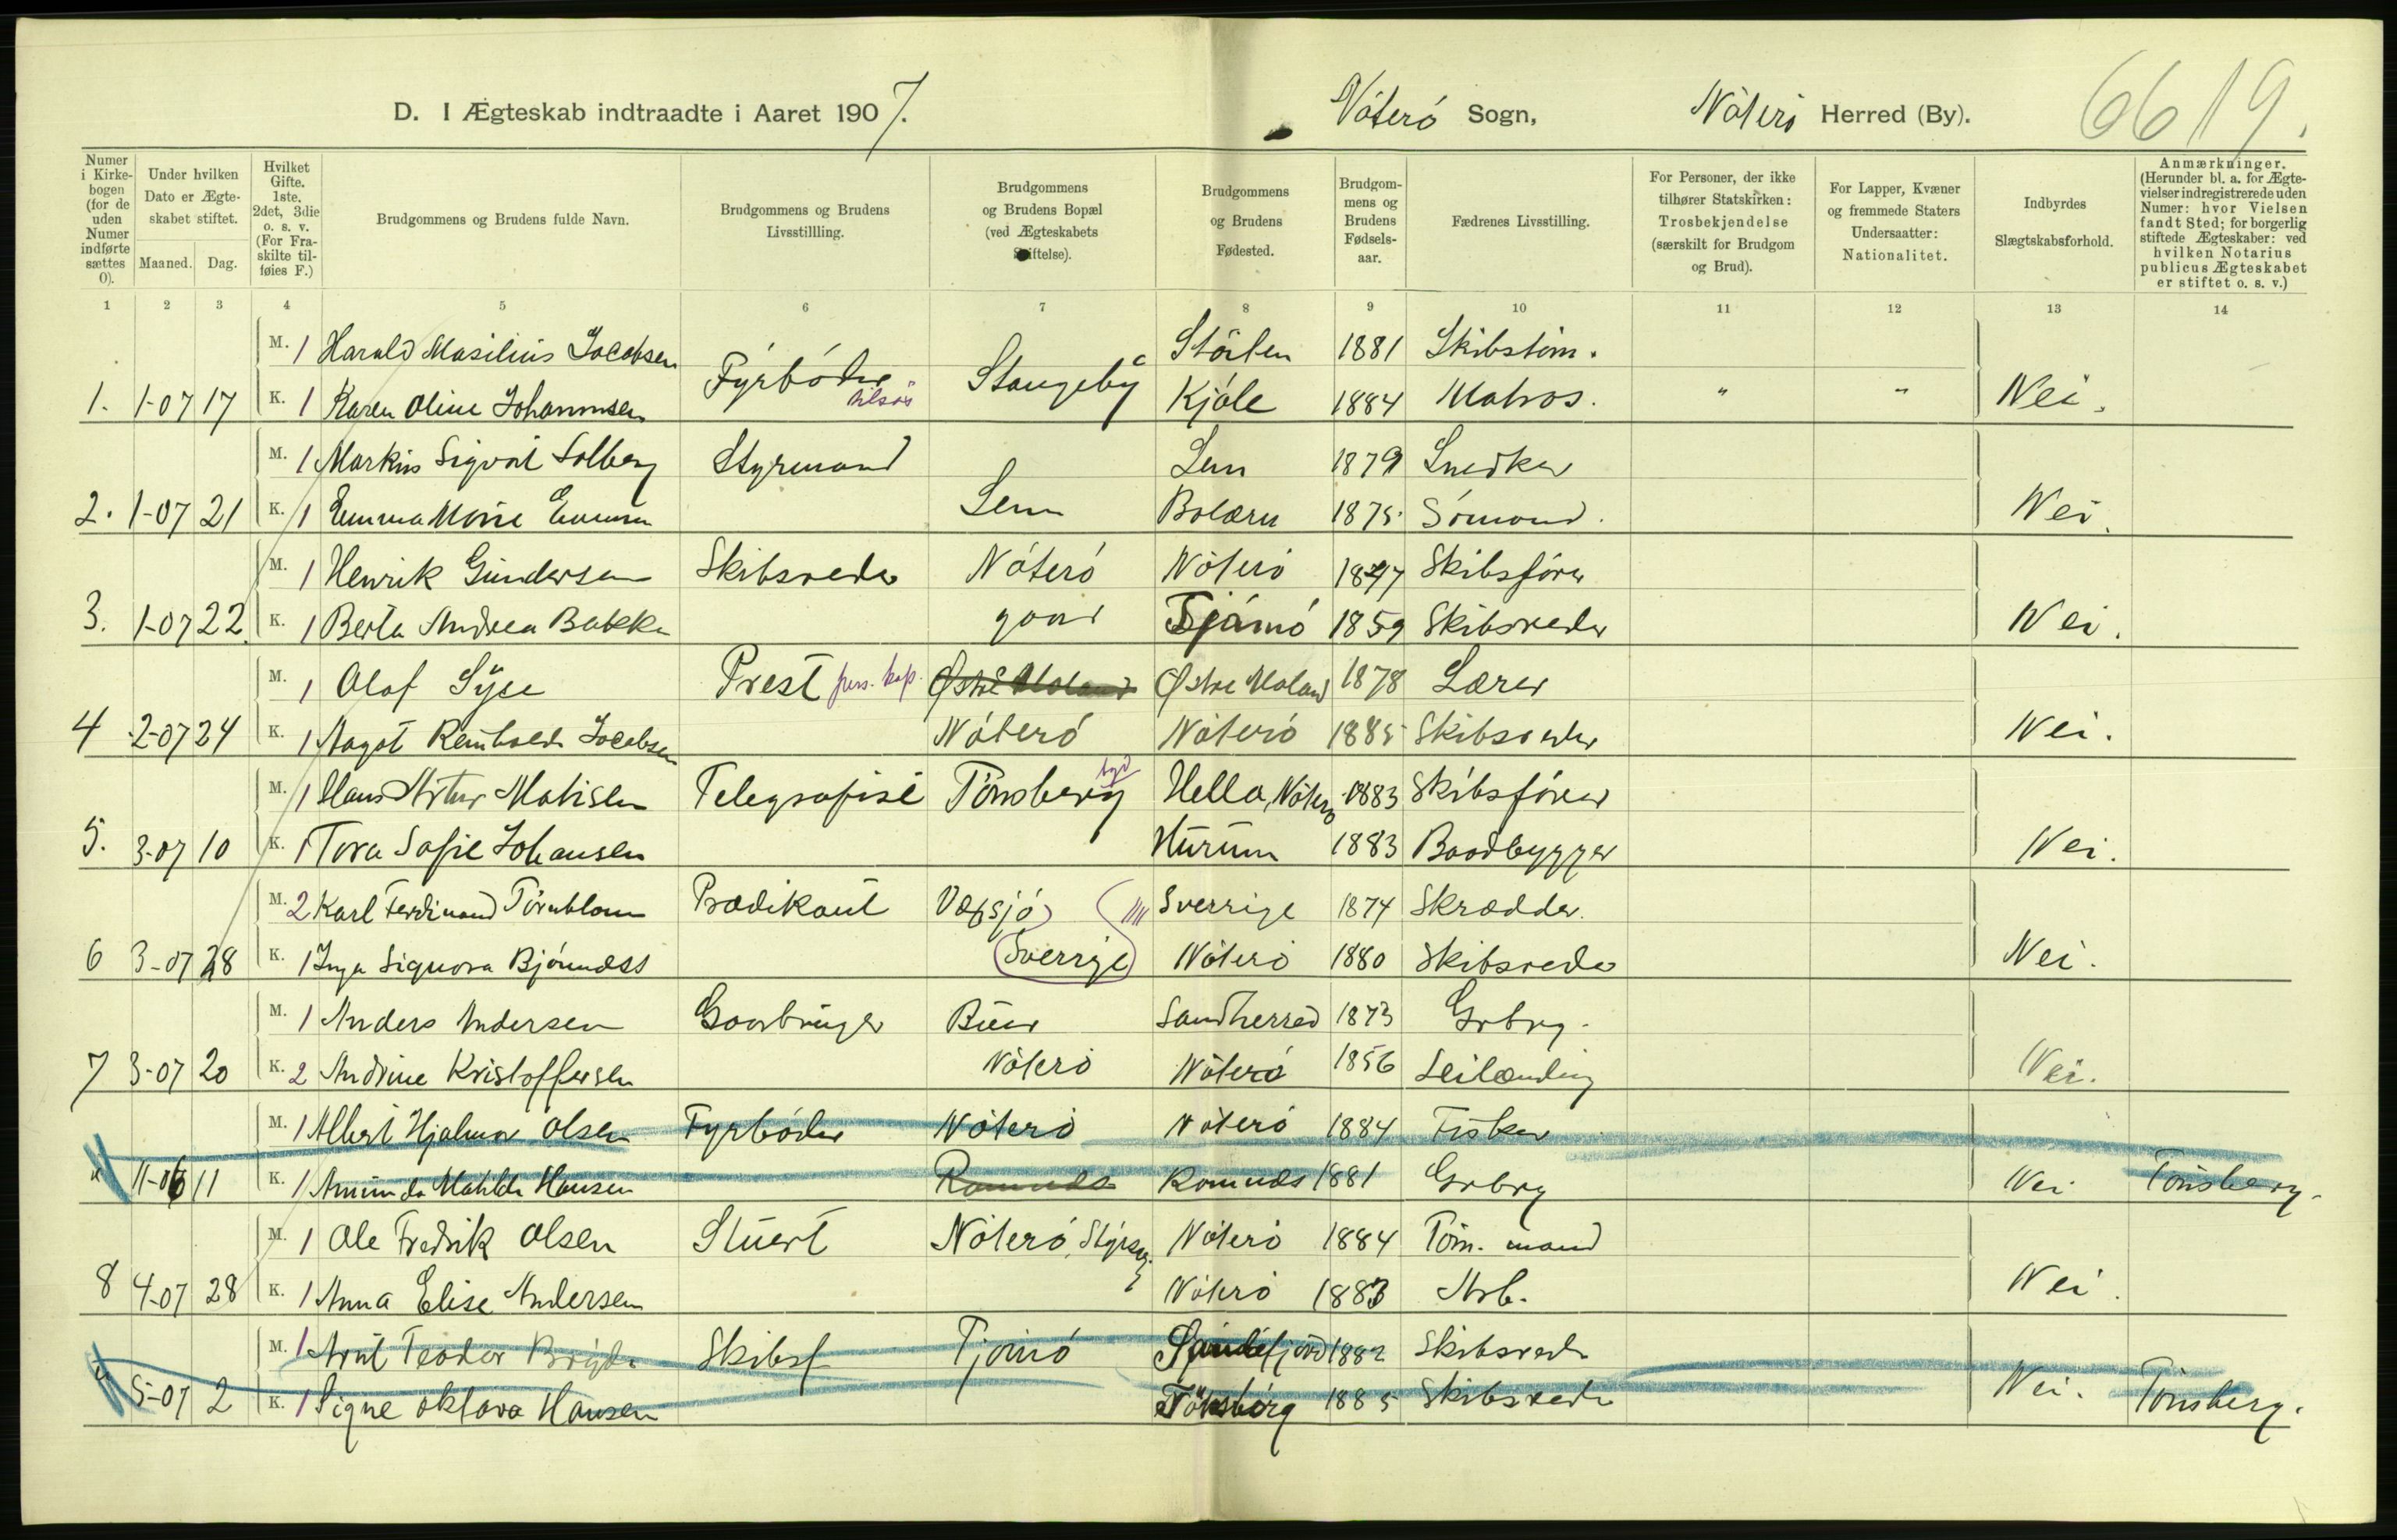 D. I Ægteskab indtraadte i Aaret 1907. Nóteró Sogn, Nóteró Herred (By). 6619.
Numer i Kirkebogen (for de uden Numer indførte sættes 0).
Under hvilken Dato er Ægteskabet stiftet.
Maaned. Dag.
Hvilket Gifte. 1ste. 2det, 3die o. s. v. (For Fraskilte tilføies F.)
Brudgommens og Brudens fulde Navn.
Brudgommens og Brudens Livsstillling.
Brudgommens og Brudens Bopæl (ved Ægteskabets Stiftelse).
Brudgommens og Brudens Fødested.
Brudgommens og Brudens Fødselsaar.
Fædrenes Livsstilling.
For Personer, der ikke tilhører Statskirken: Trosbekjendelse (særskilt for Brudgom og Brud).
For Lapper, Kvæner og fremmede Staters Undersaatter: Nationalitet.
Indbyrdes Slægtskabsforhold.
Anmærkninger. (Herunder bl. a. for Ægtevielser indregistrerede uden Numer: hvor Vielsen fandt Sted; for borgerlig stiftede Ægteskaber: ved hvilken Notarius publicus Ægteskabet er stiftet o. s. v.)
1 2 3 4 5 6 7 8 9 10 11 12 13 14
M. 1 Harald Masilius Jacobsen Fyrbóder Stangeby Stórten 1881 Skibstóm.
1. 1-07 17 K. 1 Karen Oline Johannnsen Kjóle 1884 Matros. " " Nei.
M. 1 Markus Sigvart Solberg Styrmand Lem 1879 Snedker
2. 1-07 21 K. 1 Emma Marie Lem Bolærn 1875 Sómand. Nei.
M. 1 Henrik Gundersen Skibsreder Nóteró Nóteró 1847 Skibsfórer
3. 1-07 22. K. 1 Berta Andrea Bakke gaar Tjómó 1859 Skibsreder Nei.
M. 1 Olaf Syse Prest pers. kap. Østre Moland Østre Moland 1878 Lærer
4 2-07 24 K. 1 Aagot Reinholdt Jacobsen Nóteró Nóteró 1885 Skibsreder Nei.
M. 1 Hans Artur Matisen Telegrafist Tónsberg Hella, Nóteró 1883 Skibsfórer
5. 3-07 10 K. 1 Tora Sofie Johansen Hurum 1883 Baadbygger Nei.
M. 2 Karl Ferdinand Tórnblom Prædikant Sverrige 1874 Skrædder.
6 3-07 28 K. 1 Inga Signora Bjónness Sverrige Nóteró 1880 Skibsreder Nei.
M. 1 Anders Andersen Gaarbruger Buer Sandherred 1873 Grbrg.
7 3-07 20 K. 2 Andrine Kristoffersen Nóteró Nóteró 1856 Leilænding Nei.
M. 1 Albert Hjalmar Olsen Fyrbóder Nóteró Nóteró 1884 Fisker
" 11-06 11 K. 1 Amunda Matilde Hansen Ramnds Ramnds 1881 Grbrg Nei Tónsberg.
M. 1 Ole Fredrik Olsen Stuert Nóteró, Nóteró 1884 Tóm. mand
8 4-07 28 K. 1 Anna Elise Andersen Nóteró 1883 Arb. Nei.
M. 1 Arnt Teodor Bryde Skibsf Tjómó Sandefjord 1882 Skibsreder
" 5-07 2 K. 1 Signe Oktava Hansen Tónsberg 1885 Skibsreder Nei. Tónsberg.